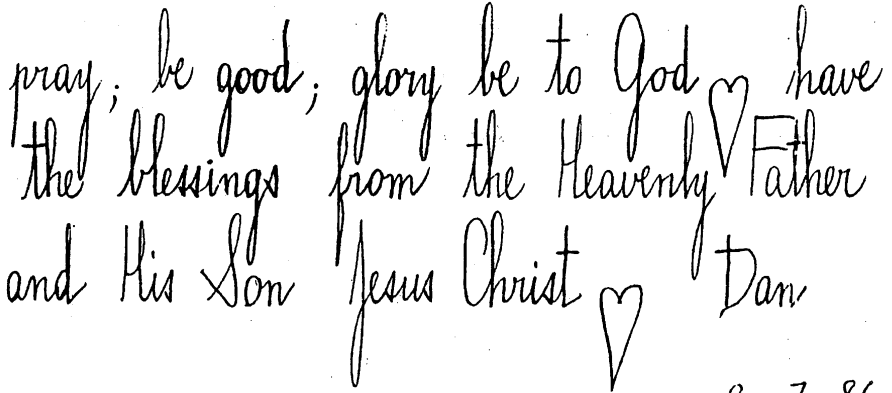 pray; be good; glory be to God ♡ have
the blessings from the Heavenly Father
and His Son Jesus Christ ♡ Dan